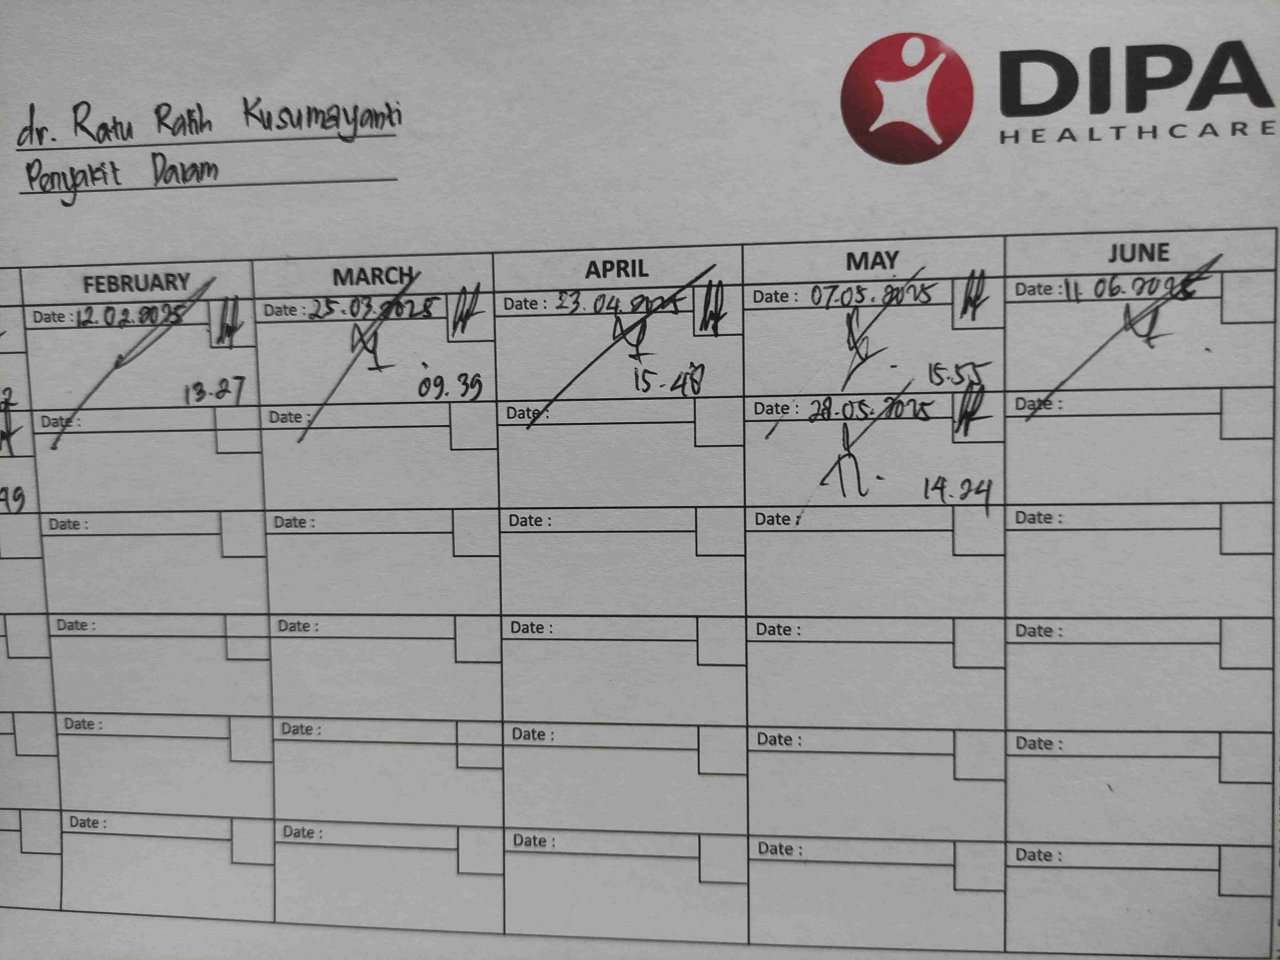 dr. Ratu Ratih Kusumayanti
Penyakit Dalam
DIPA
HEALTHCARE
FEBRUARY MARCH APRIL MAY JUNE
Date : 12.02.2025 Date : 25.03.2025 Date : 23.04.2025 Date : 07.05.2025 Date : 11.06.2025
13.27 09.39 15.48 15.55
Date : Date : Date : Date : 28.05.2025 Date :
49 14.24
Date : Date : Date : Date : Date :
Date : Date : Date : Date : Date :
Date : Date : Date : Date : Date :
Date : Date : Date : Date : Date :